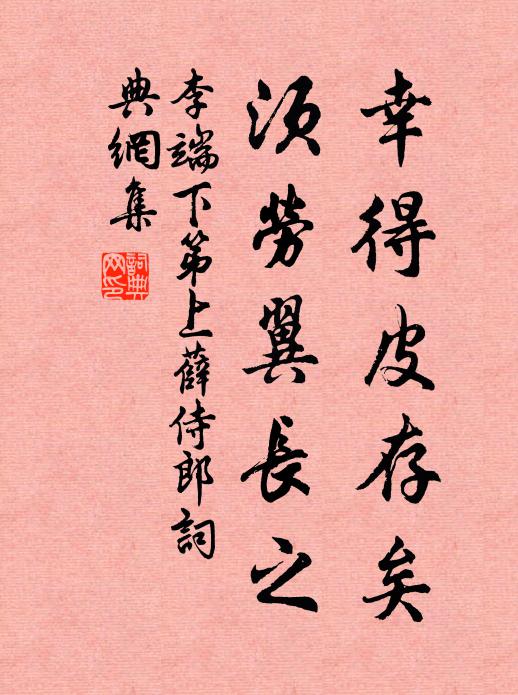 幸得皮存矣
須勞翼長之
李端下第上薛侍郎詞
典網集
詞典
网印